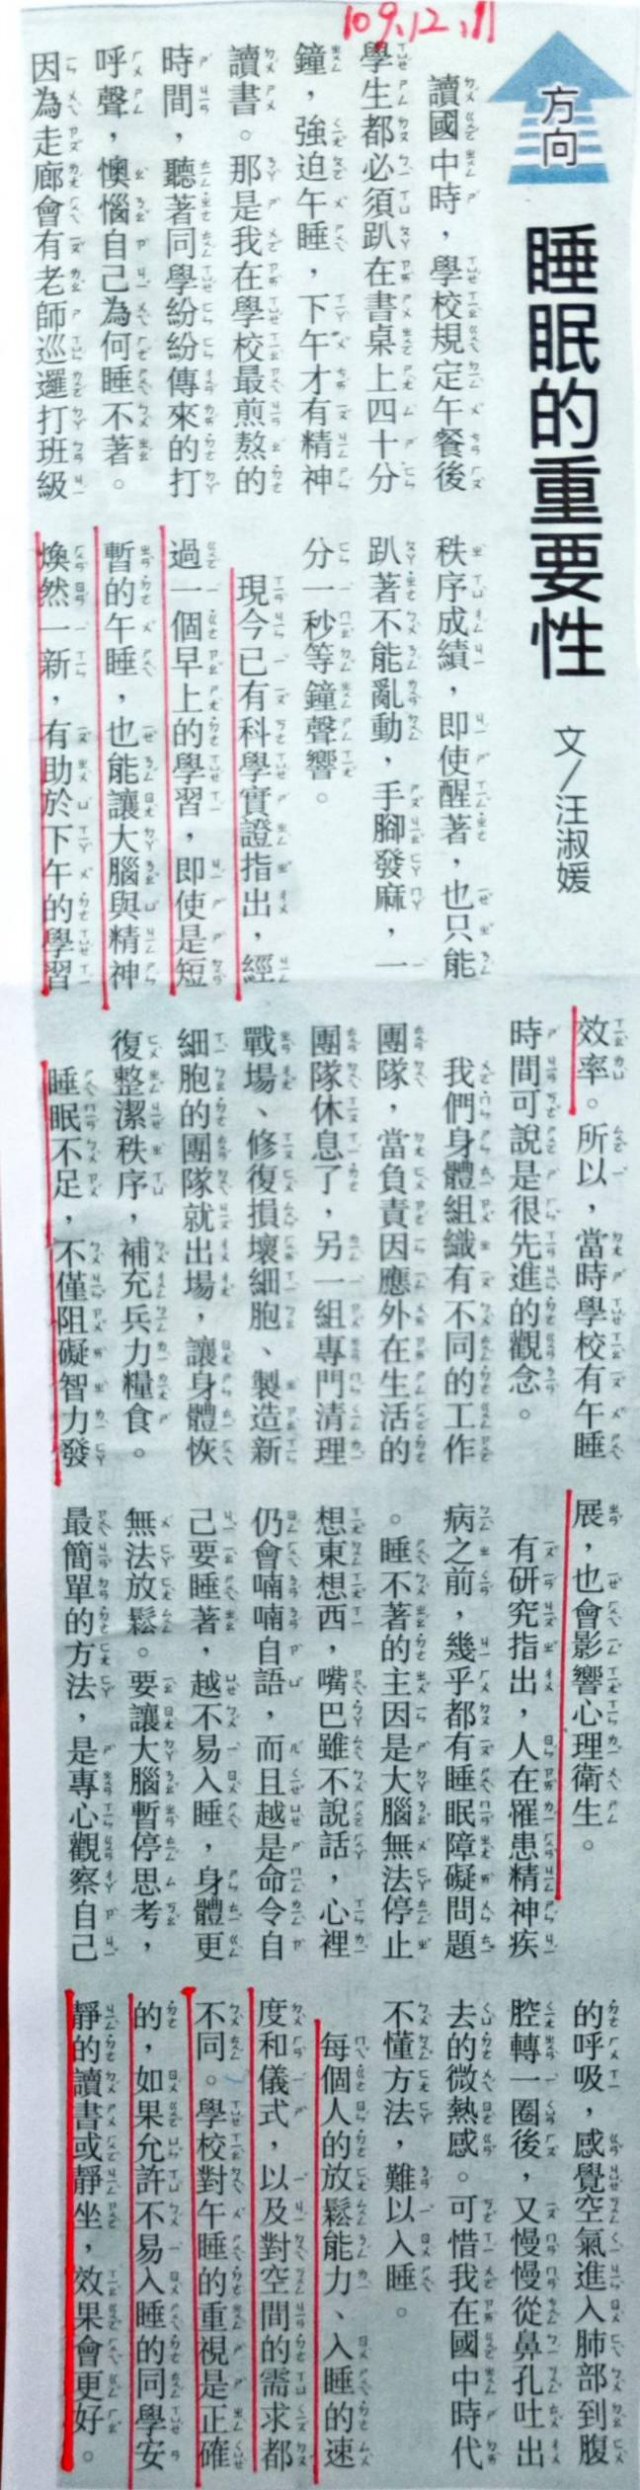 109.12.11
方向
睡眠的重要性
文／汪淑媛
讀國中時，學校規定午餐後
學生都必須趴在書桌上四十分
鐘，強迫午睡，下午才有精神
讀書。那是我在學校最煎熬的
時間，聽著同學紛紛傳來的打
呼聲，懊惱自己為何睡不著。
因為走廊會有老師巡邏打班級
秩序成績，即使醒著，也只能
趴著不能亂動，手腳發麻，一
分一秒等鐘聲響。
現今已有科學實證指出，經
過一個早上的學習，即使是短
暫的午睡，也能讓大腦與精神
煥然一新，有助於下午的學習
效率。所以，當時學校有午睡
時間可說是很先進的觀念。
我們身體組織有不同的工作
團隊，當負責因應外在生活的
團隊休息了，另一組專門清理
戰場、修復損壞細胞、製造新
細胞的團隊就出場，讓身體恢
復整潔秩序，補充兵力糧食。
睡眠不足，不僅阻礙智力發
展，也會影響心理衛生。
有研究指出，人在罹患精神疾
病之前，幾乎都有睡眠障礙問題
。睡不著的主因是大腦無法停止
想東想西，嘴巴雖不說話，心裡
仍會喃喃自語，而且越是命令自
己要睡著，越不易入睡，身體更
無法放鬆。要讓大腦暫停思考，
最簡單的方法，是專心觀察自己
的呼吸，感覺空氣進入肺部到腹
腔轉一圈後，又慢慢從鼻孔吐出
去的微熱感。可惜我在國中時代
不懂方法，難以入睡。
每個人的放鬆能力、入睡的速
度和儀式，以及對空間的需求都
不同。學校對午睡的重視是正確
的，如果允許不易入睡的同學安
靜的讀書或靜坐，效果會更好。